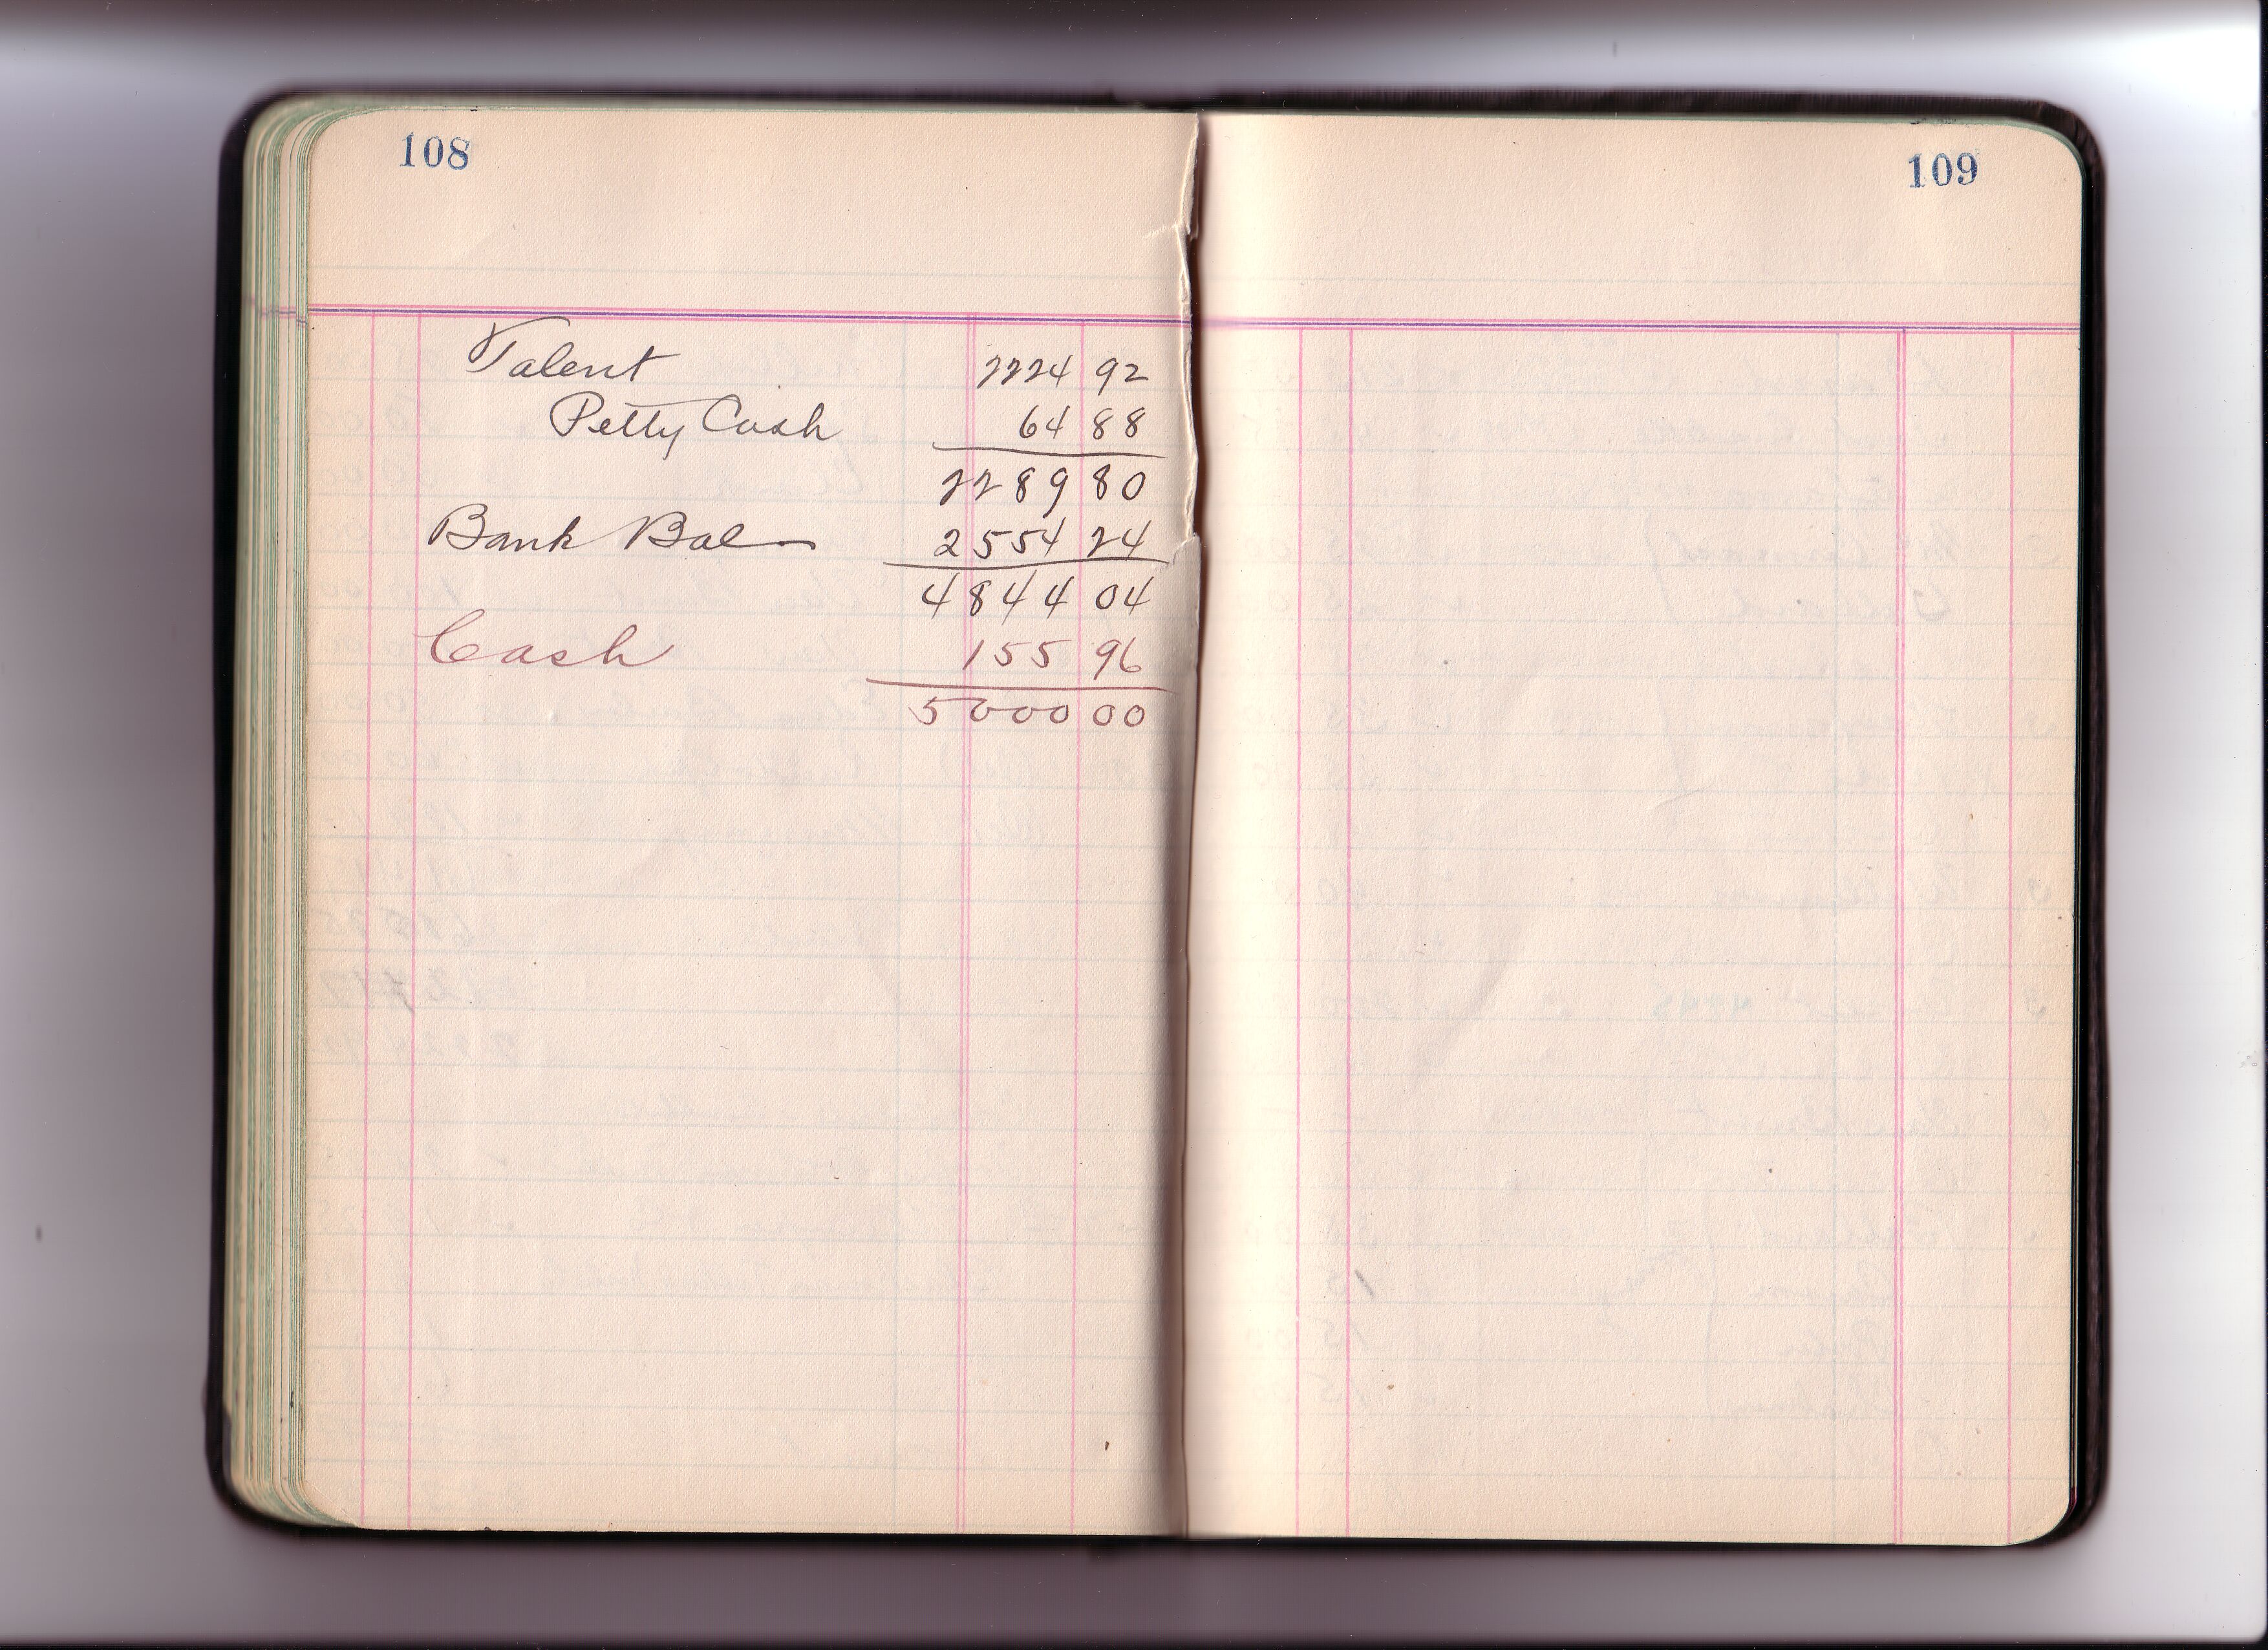 108
Talent 2224 92
Petty Cash 64 88
2289 80
Bank Bal 2554 24
4844 04
Cash 155 96
5000 00
109